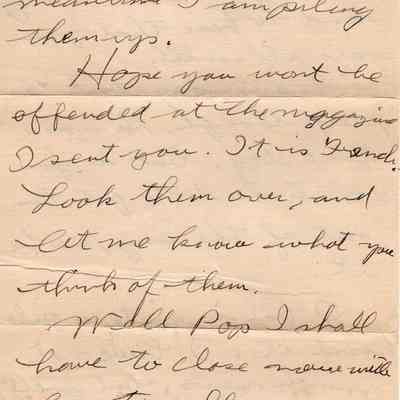 meantime I am piling
them up.
Hope you wont be
offended at the magazine
I sent you. It is French.
Look them over, and
let me know what you
think of them.
Well Pop I shall
have to close now with